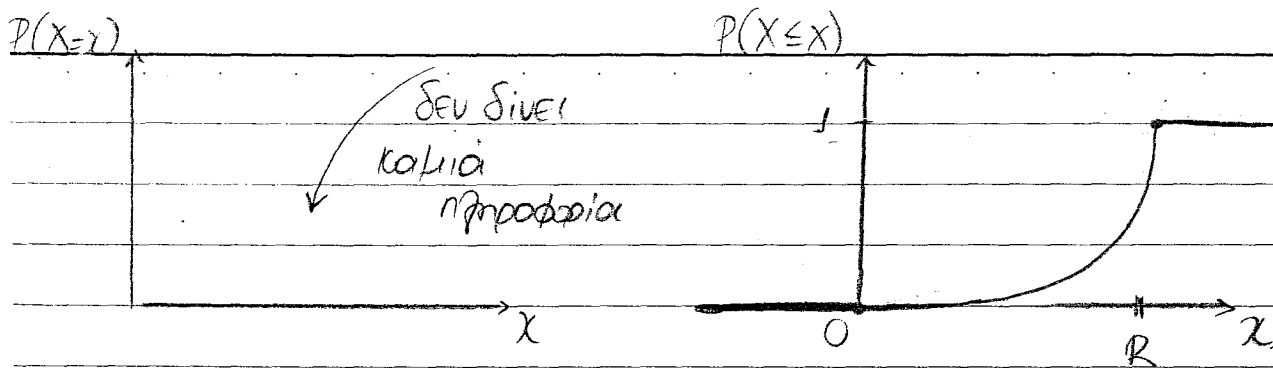 P(X=x)
δεν δίνει
καμιά
πληροφορία
x
P(X≤x)
1
0
R
x